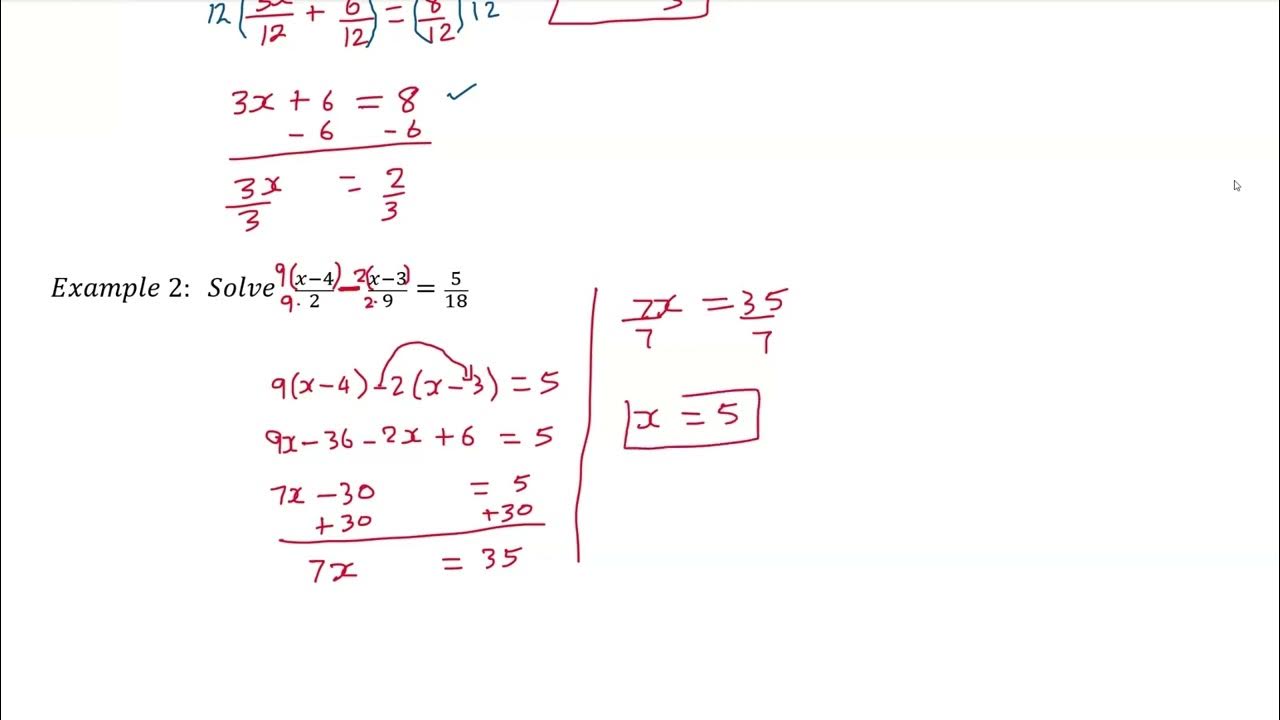 12(3x/12 + 6/12) = (8/12)12
3x + 6 = 8 ✓
- 6 - 6
3x/3 = 2/3
Example 2: Solve 9(x−4)/9·2 − 2(x−3)/2·9 = 5/18
9(x−4) −2(x−3) = 5
9x − 36 − 2x + 6 = 5
7x − 30 = 5
+30 +30
7x = 35
7x/7 = 35/7
x = 5